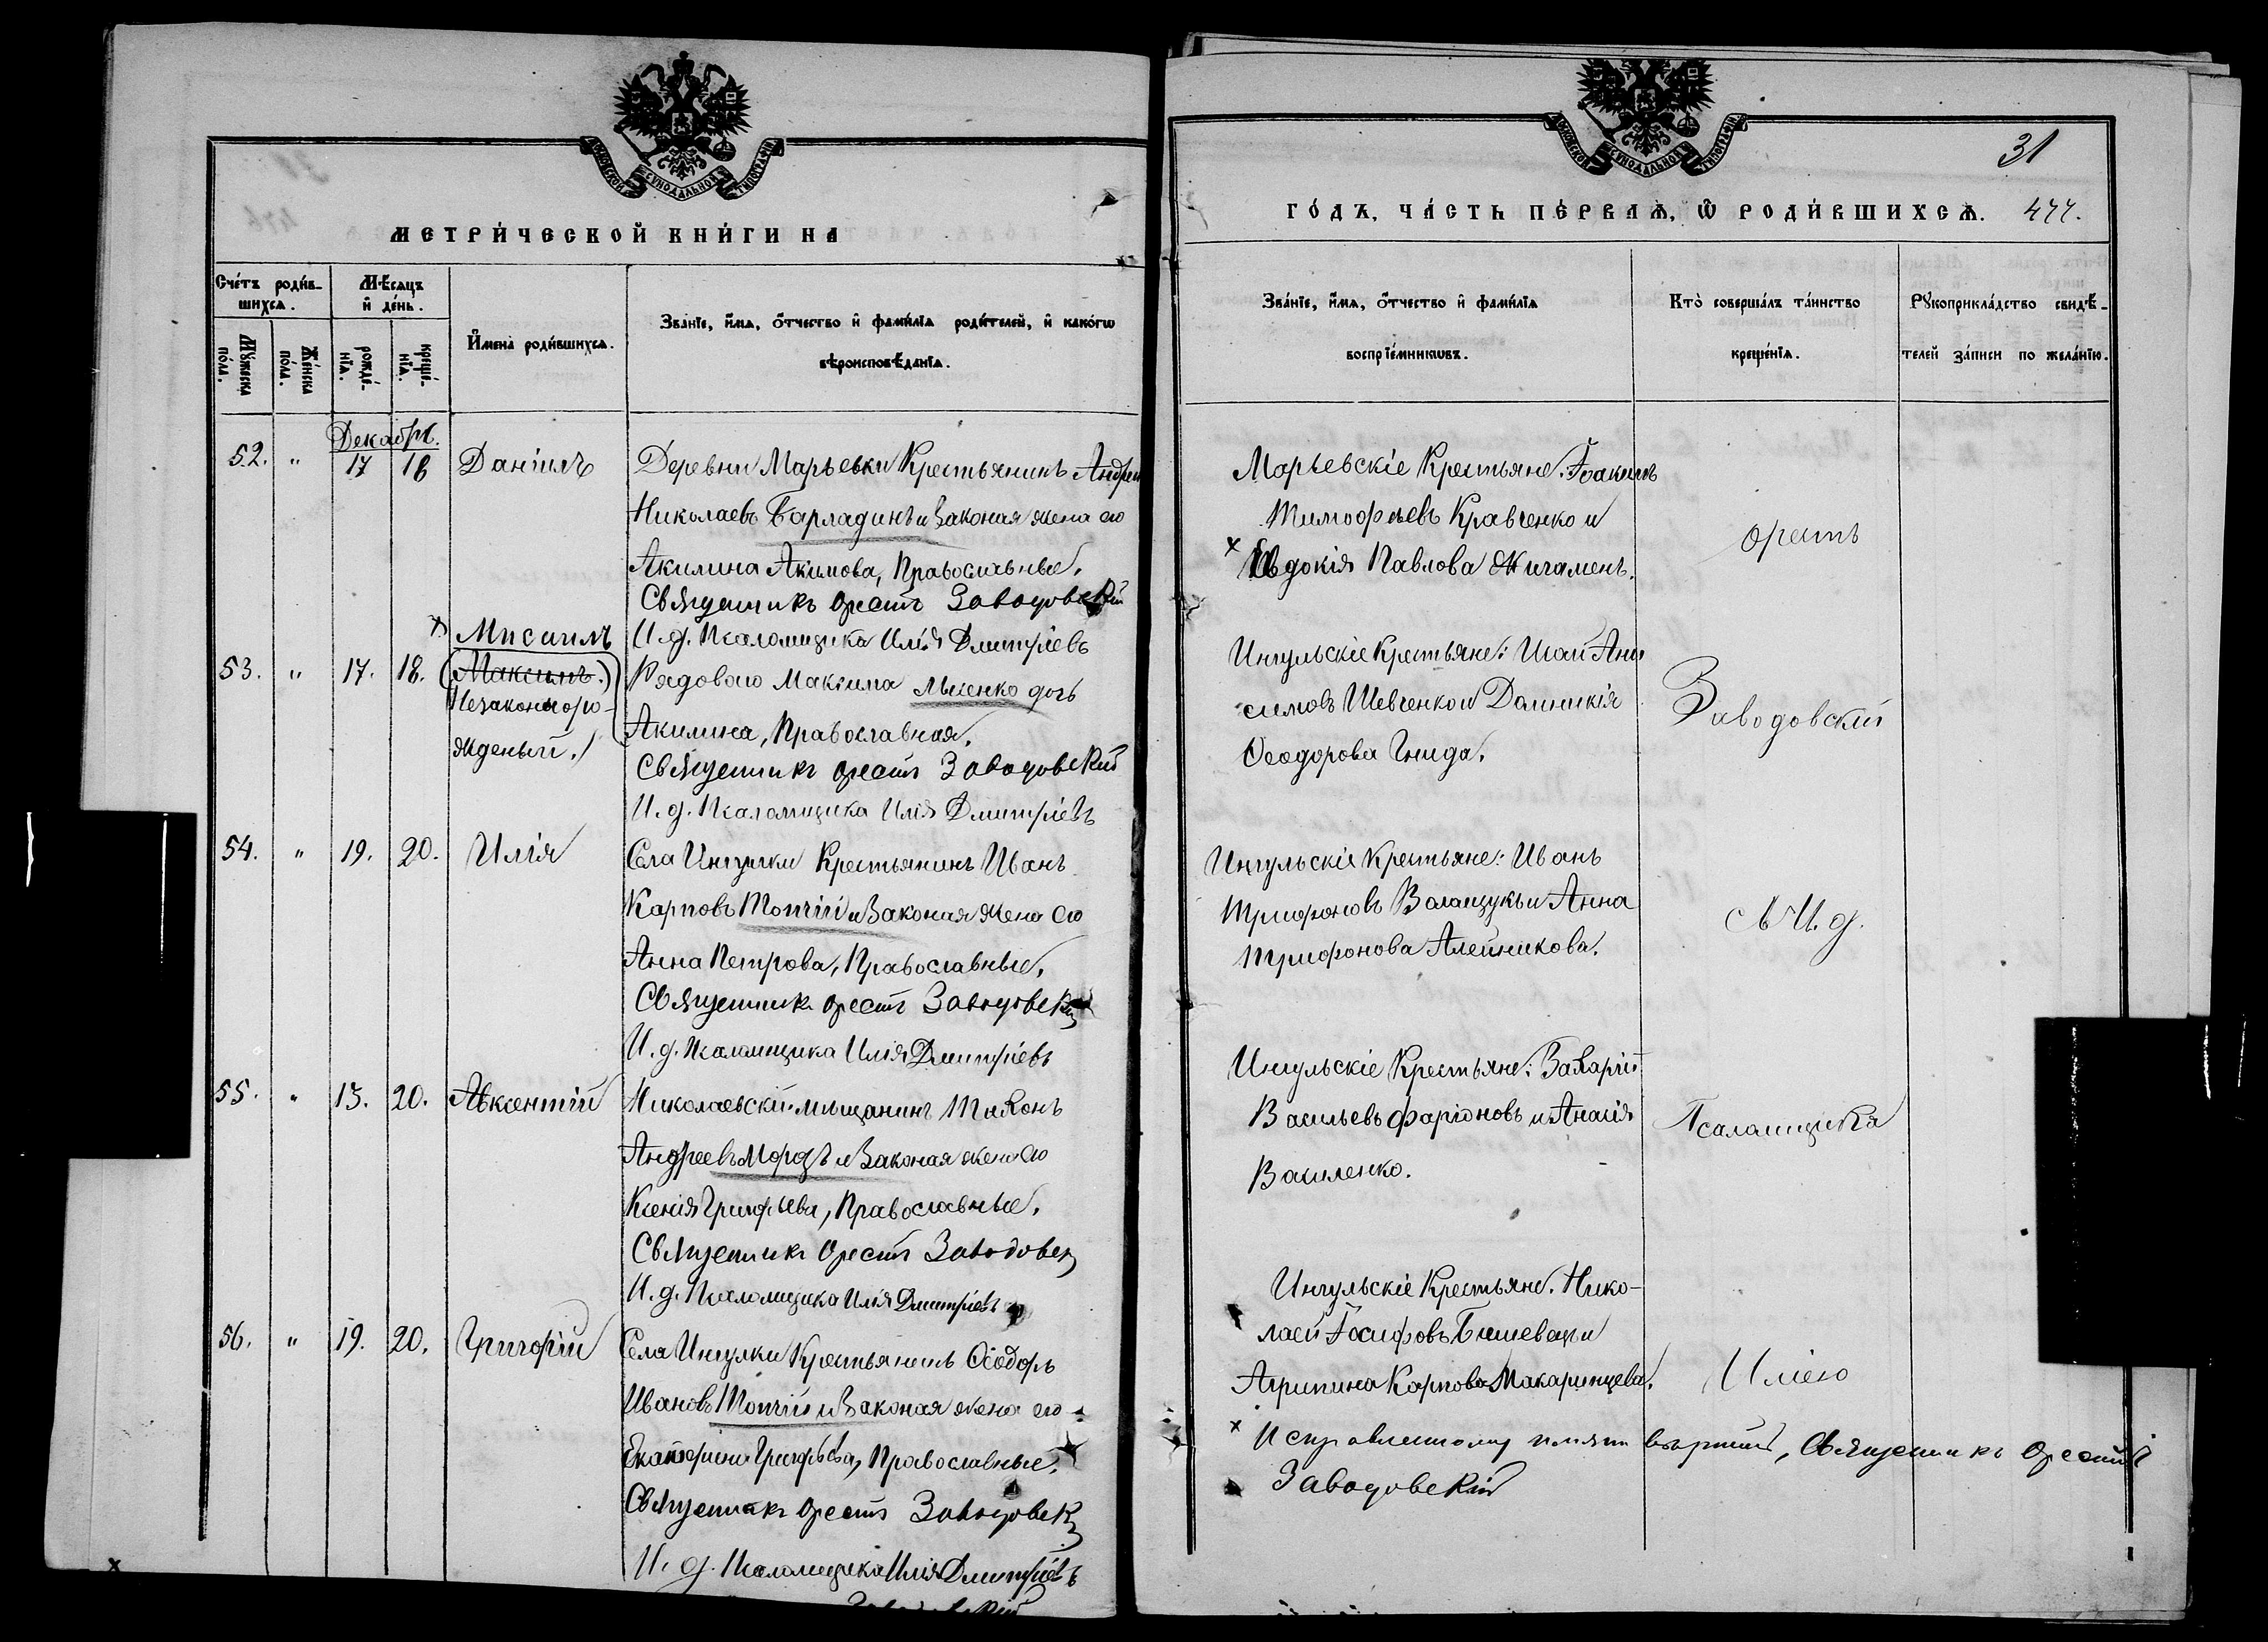 МОСКОВСКОЙ СУНОДАЛЬНОЙ ТИПОГРАФІИ
МЕТРИ́ЧЕСКОЙ КНИ́ГИ НА
Сче́тъ роди́в-
шихсѧ.
Мѣ́сѧцъ
и҆ де́нь.
Мꙋ́жеска
по́ла.
Же́нска
по́ла.
рожде́-
нїѧ.
креще́-
нїѧ.
И҆мена̀ роди́вшихсѧ.
Зва́нїе, и҆́мѧ, ѻ҆́тчество и҆ фами́лїѧ роди́телей, и҆ како́гѡ
вѣроисповѣ́данїѧ.
Декабрь.
52. " 17 18 Даніилъ
Деревни Марьевки Крестьянинъ Андрей
Николаевъ Барладинъ и Законая жена его
Акилина Акимова, Православные.
Священникъ Орестъ Заводовскій
И. д. Псаломщика Илія Дмитріевъ
53. " 17. 18. × Мисаилъ
(Максимъ.)
Незаконоро-
жденый.)
Рядового Максима Лысенко дочь
Акилина, Православная.
Священникъ Орестъ Заводовскій
И. д. Псаломщика Илія Дмитріевъ
54. " 19. 20. Илія
Села Ингулки Крестьянинъ Иванъ
Карповъ Топчій и Законая жена его
Анна Петрова, Православные.
Священникъ Орестъ Заводовскій
И. д. Псаломщика Илія Дмитріевъ
55. " 13. 20. Авксентій
Николаевскій мещанинъ Тихонъ
Андреевъ Морозъ и Законая жена его
Ксенія Григорьева, Православные.
Священникъ Орестъ Заводовск
И. д. Псаломщика Илія Дмитріевъ
56. " 19. 20. Григорій
Села Ингулки Крестьянинъ Ѳеодоръ
Ивановъ Топчій и Законая жена его
Екатерина Григорьева, Православные.
Священникъ Орестъ Заводовск
И. д. Псаломщика Илія Дмитріевъ
МОСКОВСКОЙ СУНОДАЛЬНОЙ ТИПОГРАФІИ
31
ГО́ДЪ, ЧА́СТЬ ПЕ́РВАѦ, Ѡ҆ РОДИ́ВШИХСѦ. 477.
Зва́нїе, и҆́мѧ, ѻ҆́тчество и҆ фами́лїѧ
воспрїе́мникѡвъ.
Кто̀ соверша́лъ та́инство
креще́нїѧ.
Рꙋкоприкла́дство свидѣ́-
телей за́писи по жела́нїю.
Марьевскіе Крестьяне: Іоакимъ
Тимофѣевъ Кравченко и
× Евдокія Павлова Жигаменъ.
Орестъ
Ингульскіе Крестьяне: Исай Ани
симовъ Шевченко и Домникія
Ѳеодорова Гнида.
Заводовскій
Ингульскіе Крестьяне: Иванъ
Трифоновъ Волощукъ и Анна
Трифонова Алейникова.
съ И. д.
Ингульскіе Крестьяне: Захарій
Васильевъ Фаріоновъ и Анасія
Василенко.
Псаломщика
Ингульскіе Крестьяне. Нико-
лай Іосифовъ и
Агрипина Карпова Макаринцева.
Иліею
× Исправленному верить, Священникъ Орестъ
Заводовскій